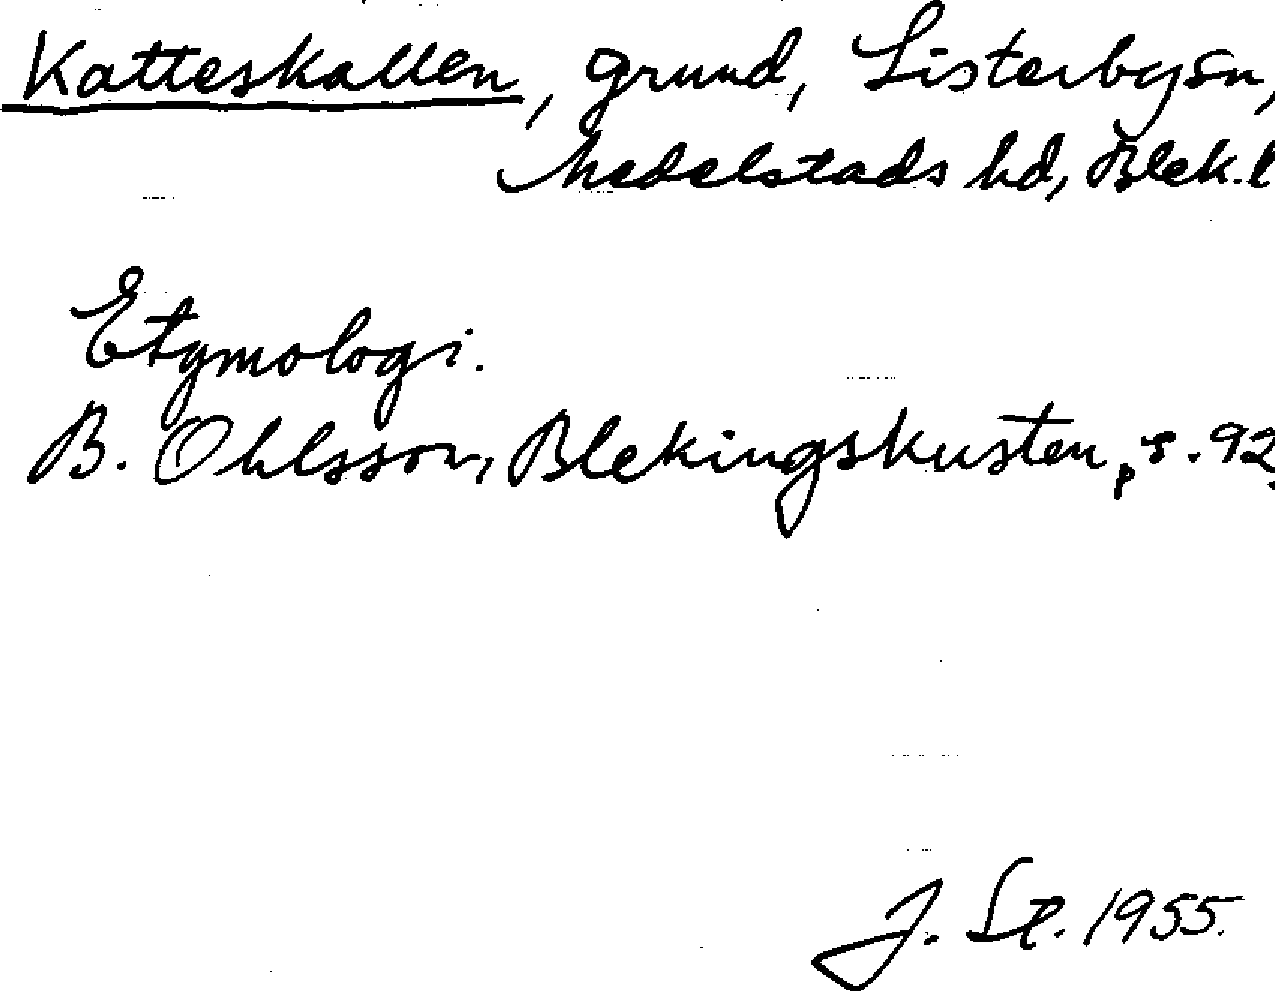 Katteskallen, grund, Listerby sn,
Medelstads hd, Blek. l
Etymologi.
B. Ohlsson, Blekingskusten, s. 92.
J. 1955.